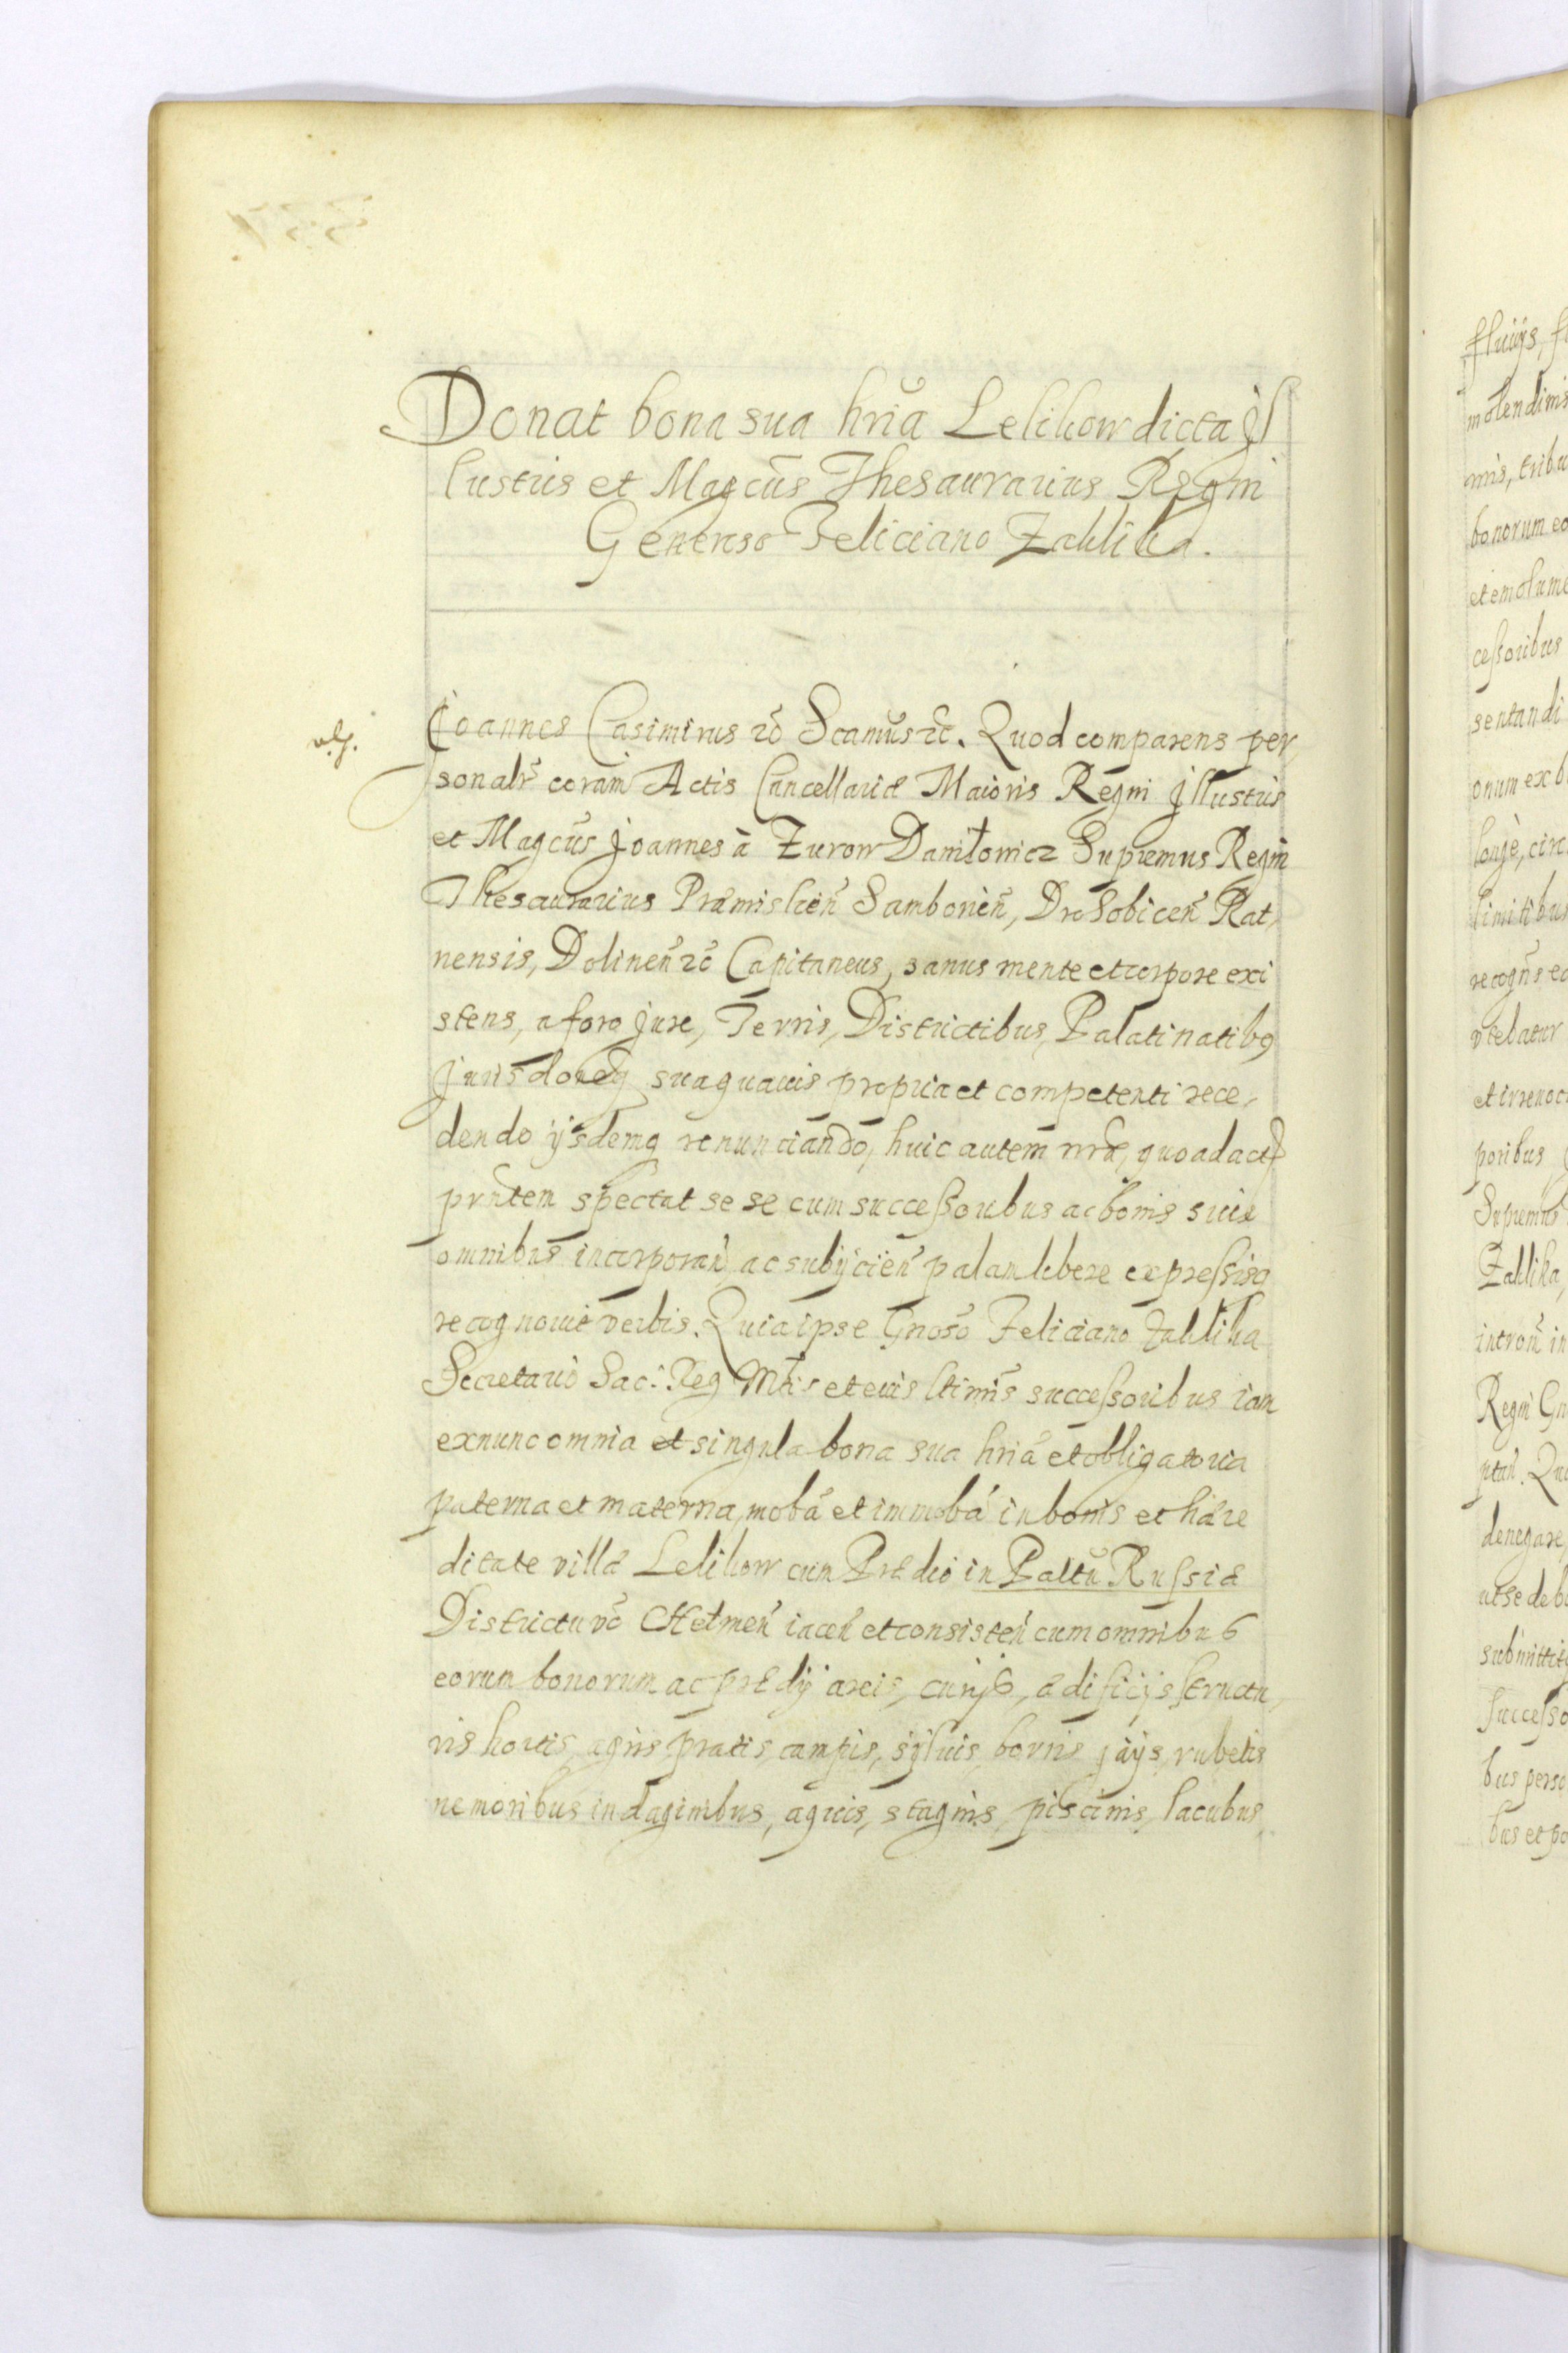 Donat bona sua hria Lelikow dicta Jl
lustris et Magcus Thesaurarius Regni
Generoso Feliciano Zaklika.
Joannes Casimirus etc Scamus etc. Quod comparens per
sonalr coram Actis Cancellariæ Maioris Regni Jllustris
et Magcus Joannes à Zurow Daniłowicz Supremus Regni
Thesaurarius Præmislien Samborien, Drohobicen Rat
nensis, Dolinen etc Capitaneus, sanus mente et corpore exi
stens, a foro jure, Terris, Districtibus, Palatinatibq
suaquavis propria et competenti rece
dendo ijsdemq renunciando, huic autem nræ, quo ad act
prntem spectat se se cum successoribus ac bonis suis
omnibus incorporan, ac subijcien palam libere expressisq
recognovit verbis. Quia ipse Gnoso Feliciano Zaklika
Secretario Sac: Reg Mtis et eius ltimis successoribus iam
exnunc omnia et singula bona sua hria et obligatoria
paterna et materna, moba et immoba in bonis et hære
ditate villæ Lelikow cum Prædio in Paltu Russiæ
Districtu vo Chelmen iacen et consisten cum omnibus
eorum bonorum ac prædij areis, curijs, ædificijs structu
ris hortis, agris pratis, campis, sylvis, borris gaijs, rubetis
nemoribus indaginibus, aquis, stagnis, piscinis, lacubus,
fluijs,
molendinis
tribu
bonorum eo
et emolume
cessoribus
sentandi
onum ex b
longè, circ
limitibus
recogns eo
vtebatur
et irrevoc
poribus
Supremus
Zaklika,
intron in
Regni Gn
ptan. Qu
denegare,
ut se deb
submittit
Successo
bus perso
bus et po